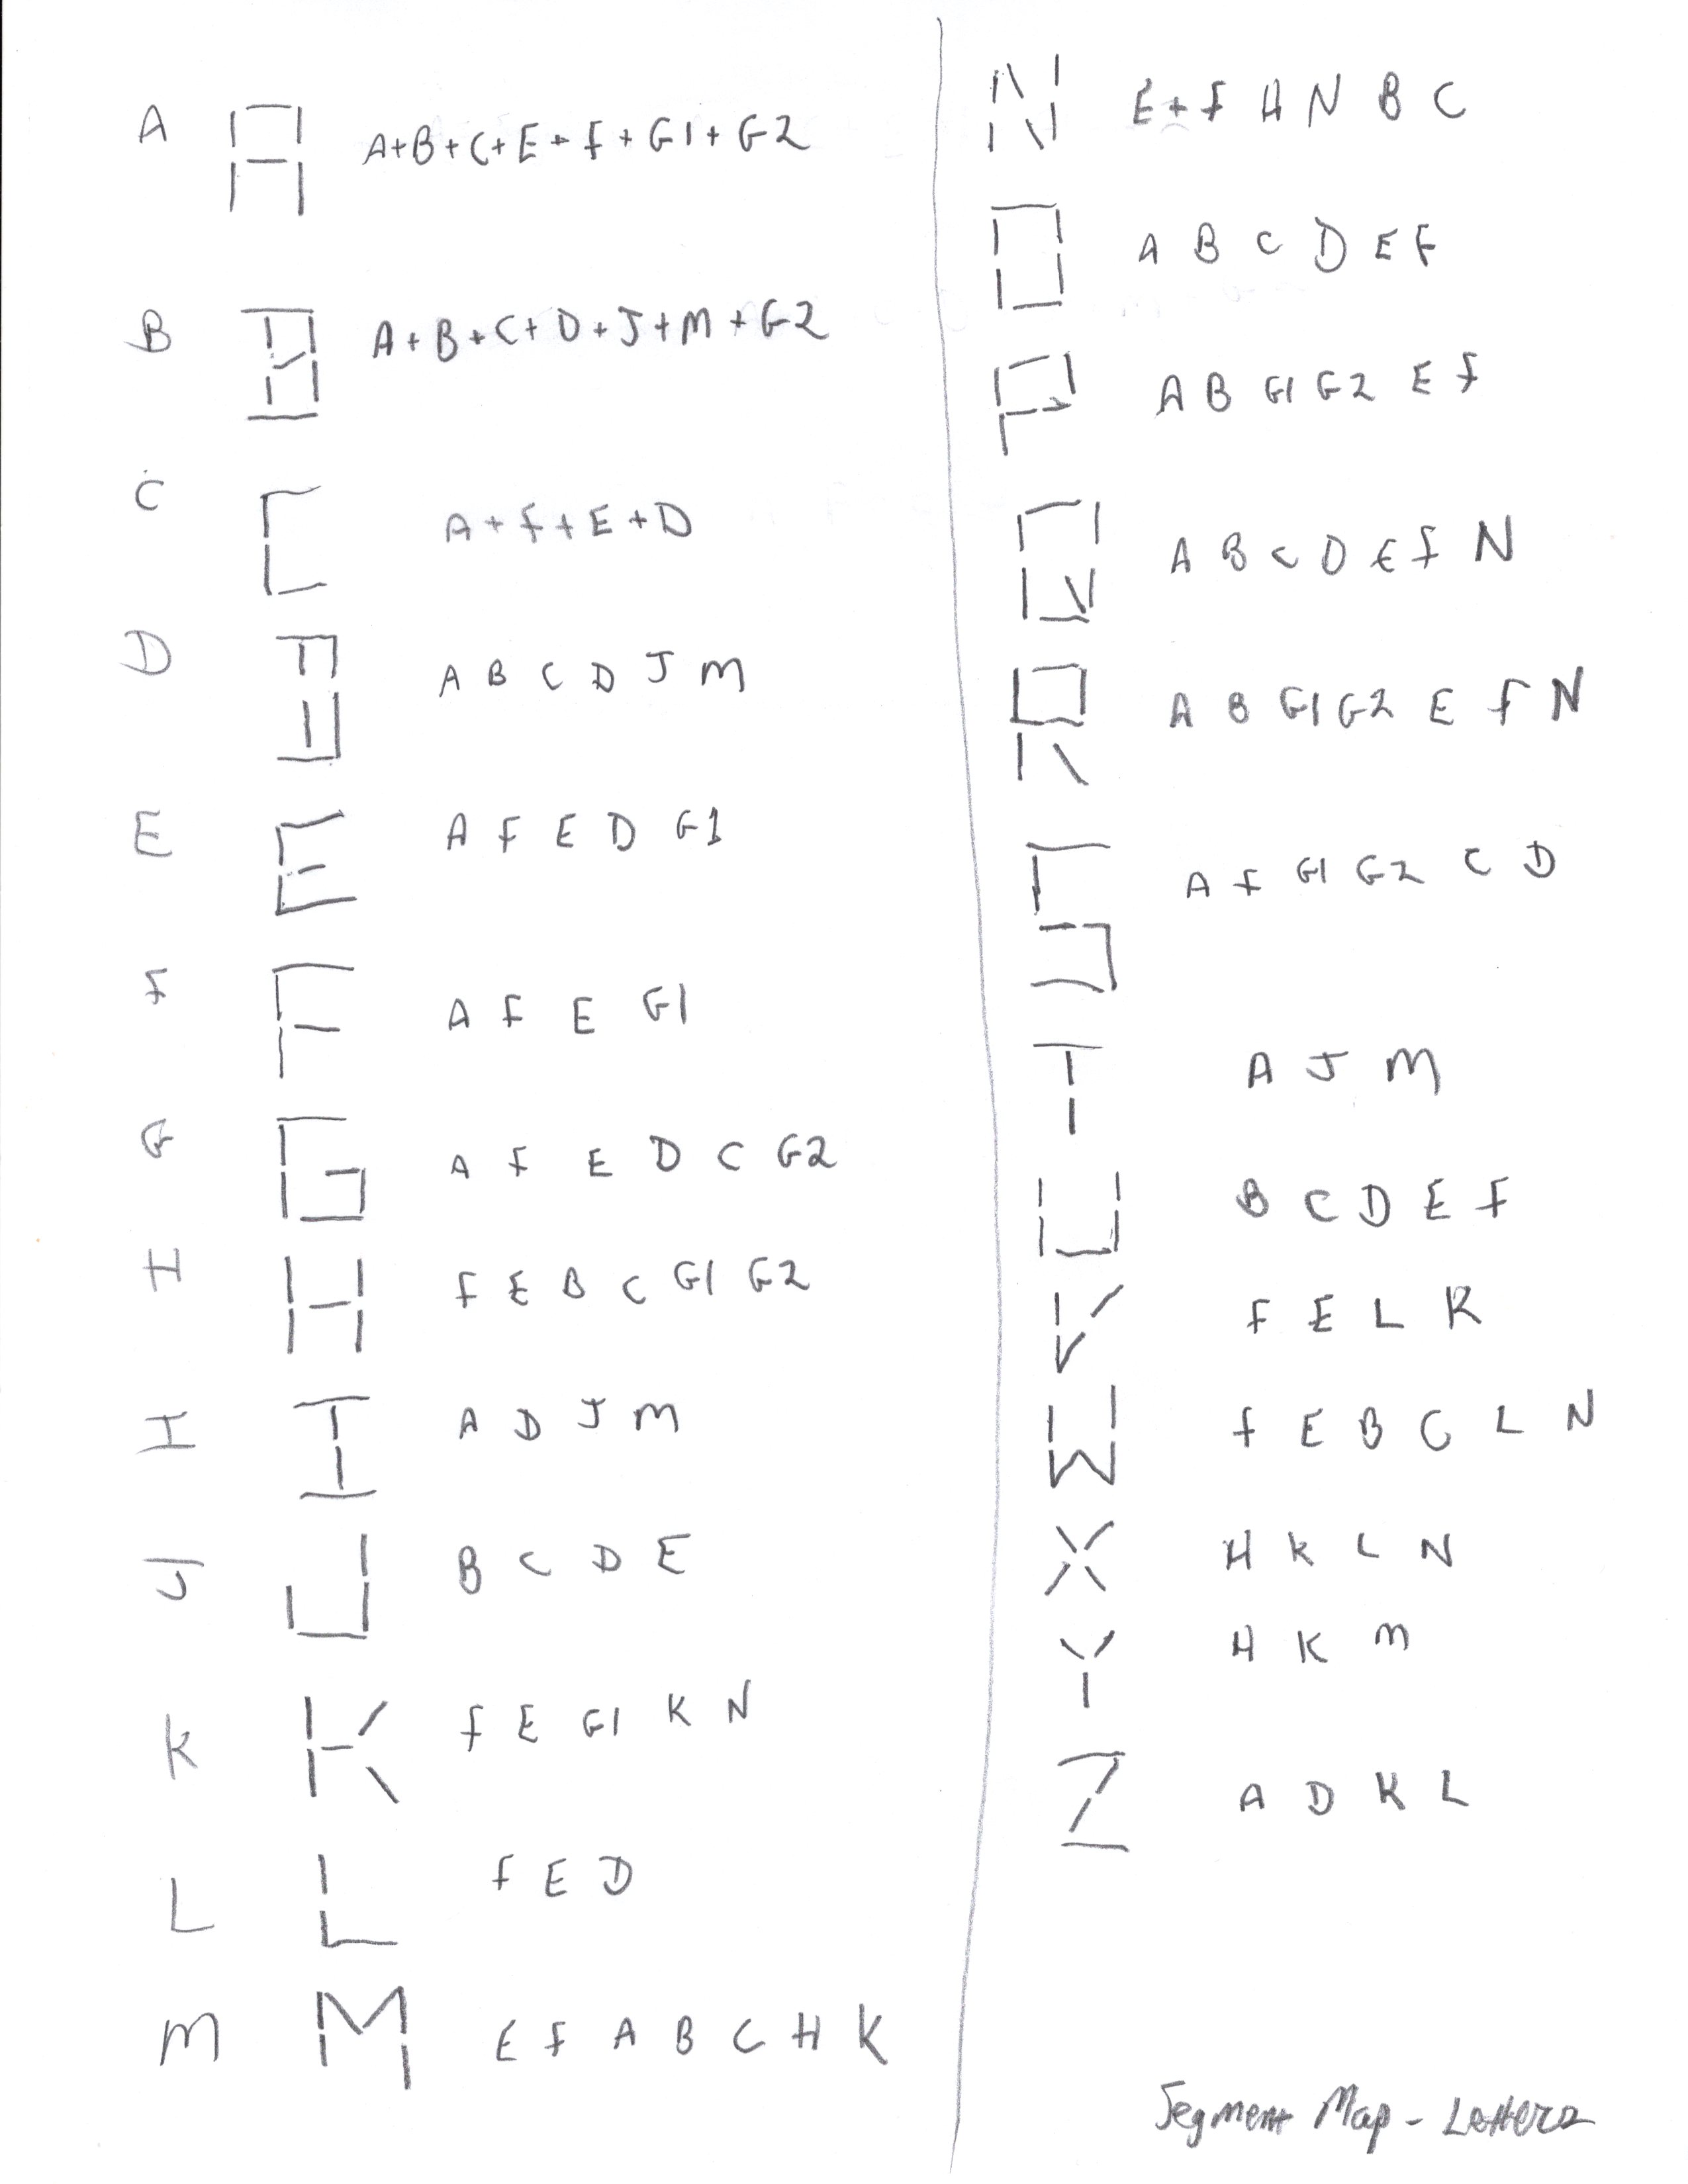 A A+B+C+E+F+G1+G2
B A+B+C+D+J+M+G2
C A+F+E+D
D A B C D J M
E A F E D G1
F A F E G1
G A F E D C G2
H F E B C G1 G2
I A D J M
J B C D E
K F E G1 K N
L F E D
M E F A B C H K
E+F H N B C
A B C D E F
A B G1 G2 E F
A B C D E F N
A B G1 G2 E F N
A F G1 G2 C D
A J M
B C D E F
F E L K
F E B C L N
H K L N
H K M
A D K L
Segment Map - Letters